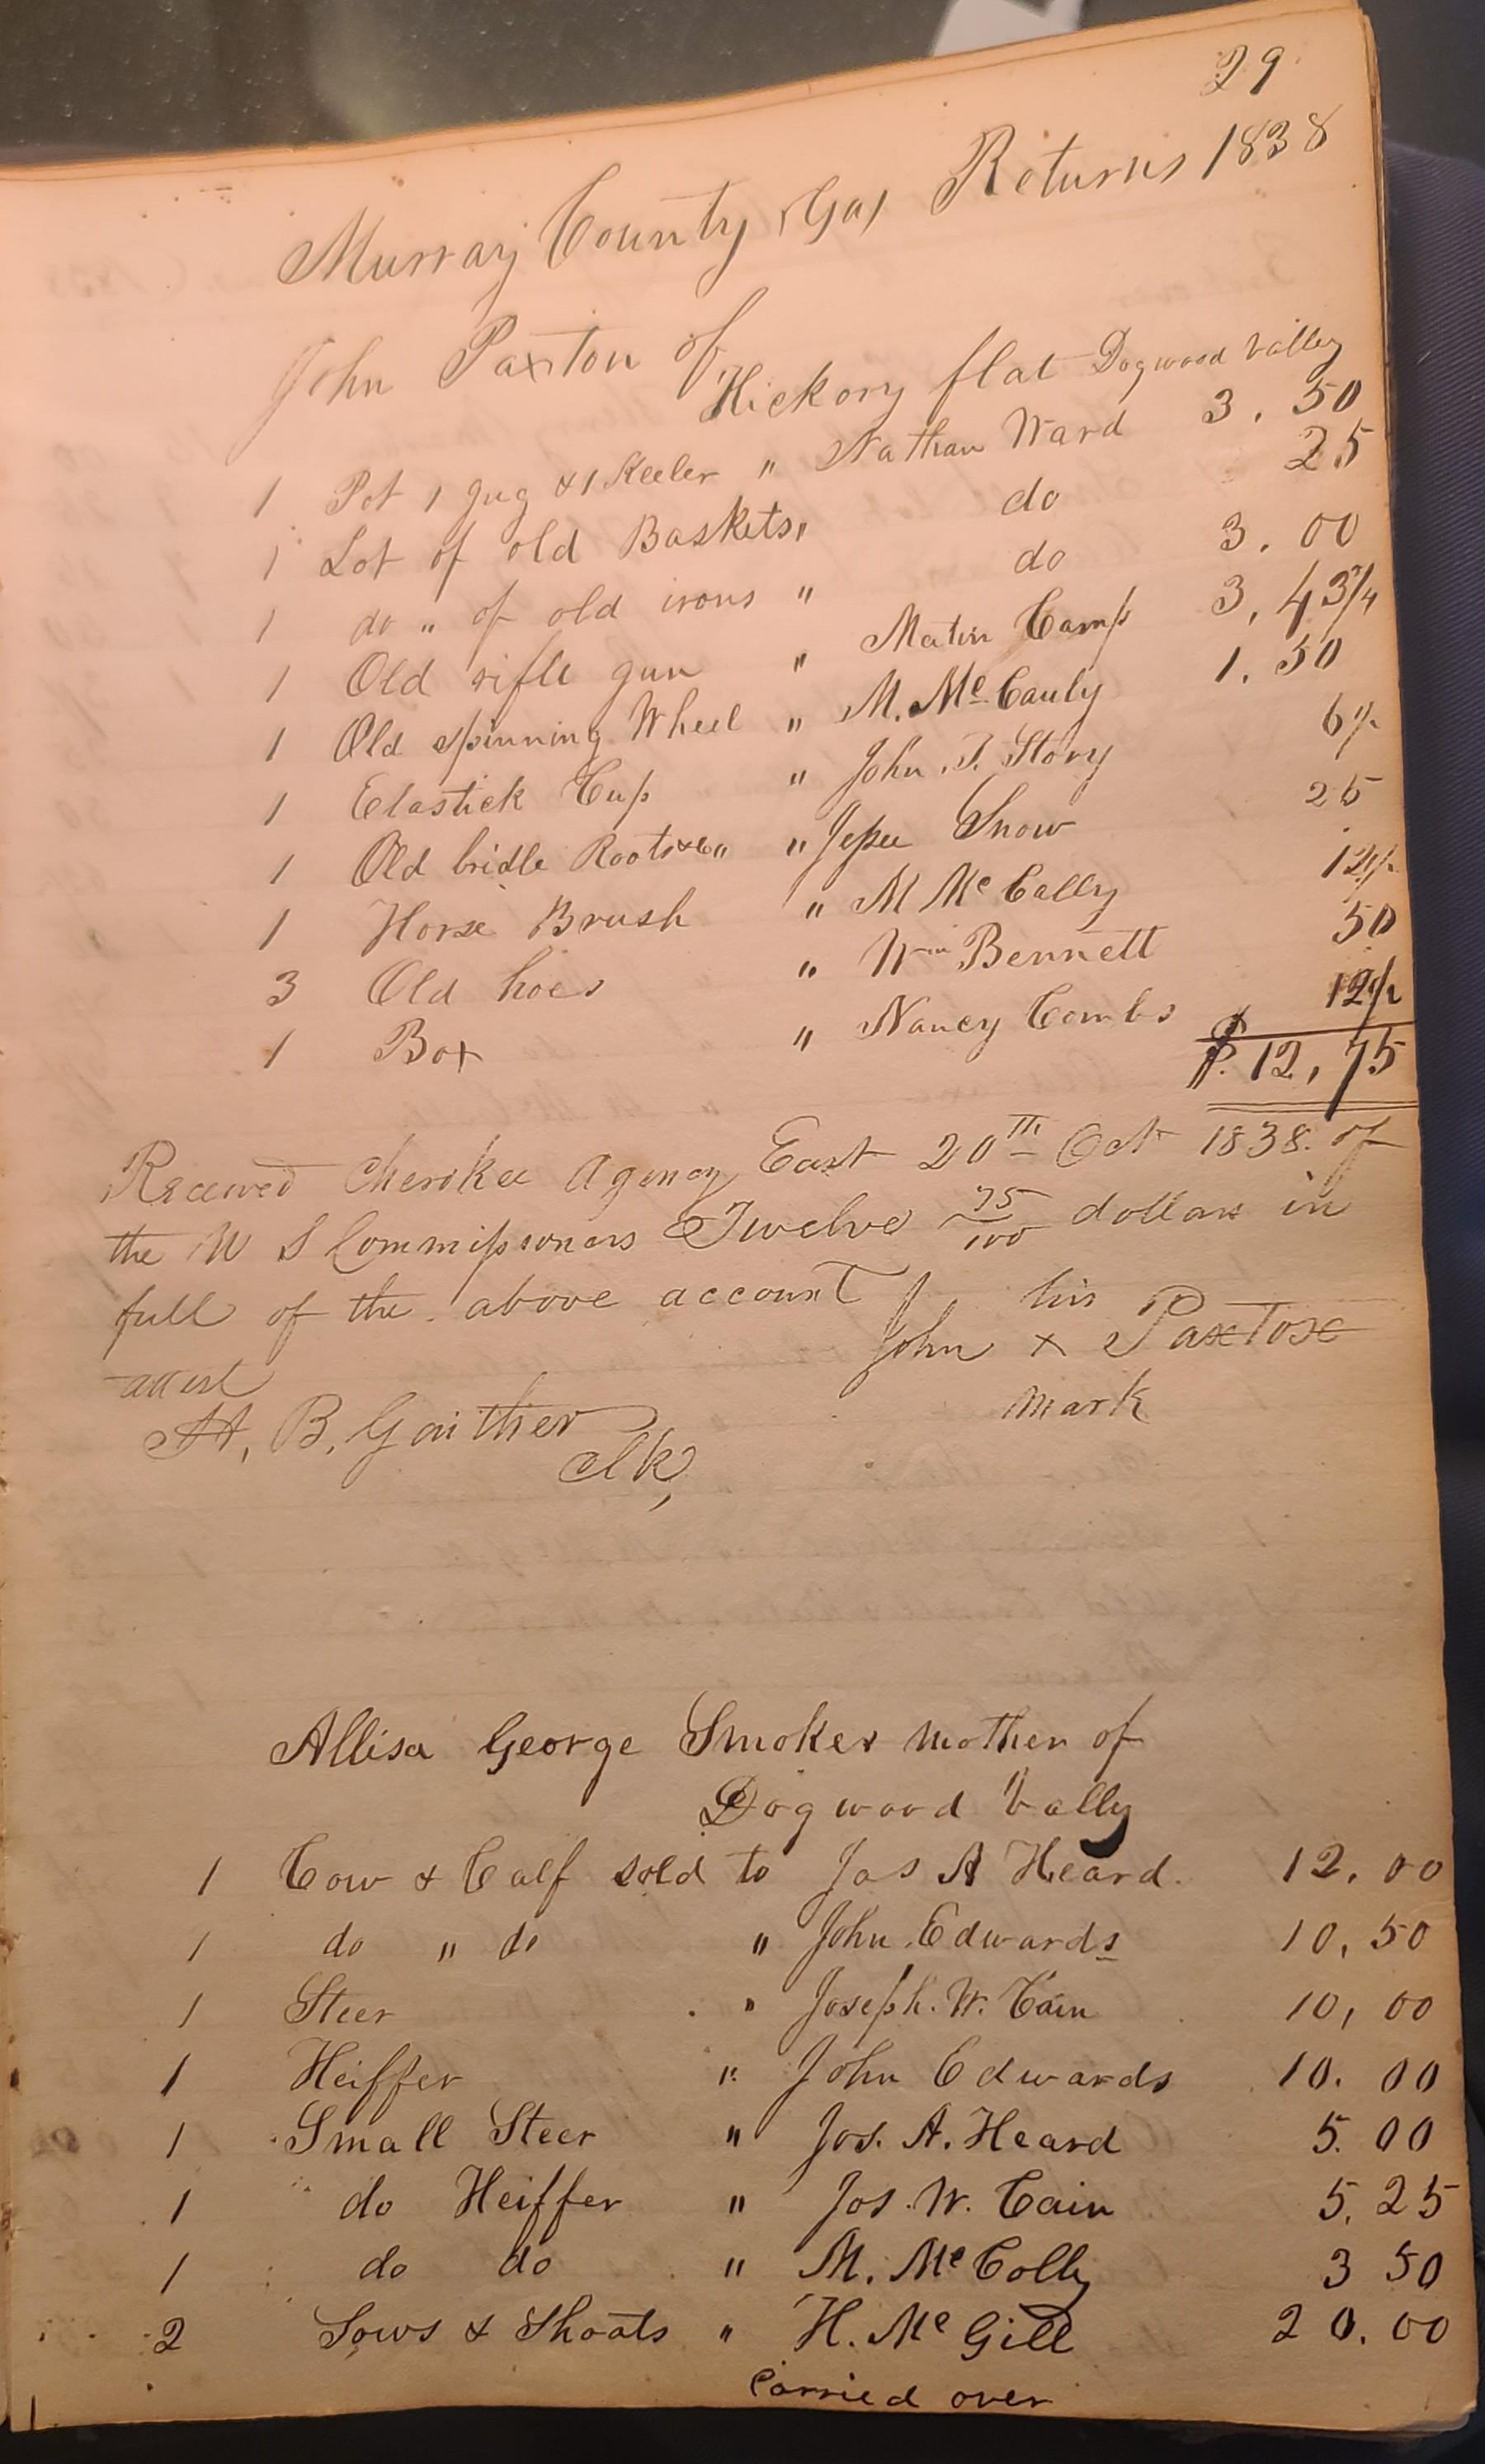 29
Murray County (Ga) Returns 1838
John Paxton of
Hickory flat Dogwood Valley
1 Pot 1 Jug & 1 Keeler " Nathan Ward 3.50
1 Lot of old Baskets " do 25
1 do " of old irons " do 3.00
1 Old rifle gun " Matin Camp 3,43 3/4
1 Old spinning Wheel " M. McCauly 1.50
1 Elastick Cup " John T. Story 6 1/4
1 Old bridle Roots &c " " Jessee Snow 25
1 Horse Brush " M McCally 12 1/2
3 Old hoes " Wm Bennett 50
1 Box " Nancy Combs 12 1/2
$ 12,75
Received Cherokee Agency East 20th Oct 1838. of
the U S Commissioners Twelve 75/100 dollars in
full of the above account
his
John x Paxton
mark
attest
A, B, Gaither
clk,
Allisa George Smoker mother of
Dogwood Vally
1 Cow & Calf sold to Jas A Heard. 12.00
1 do " do " John Edwards 10,50
1 Steer " Joseph. W. Cain 10,00
1 Heiffer " John Edwards 10.00
1 Small Steer " Jos. A. Heard 5.00
1 do Heiffer " Jos. W. Cain 5.25
1 do do " M. McColly 3 50
2 Sows & Shoats " H. McGill 20.00
Carried over